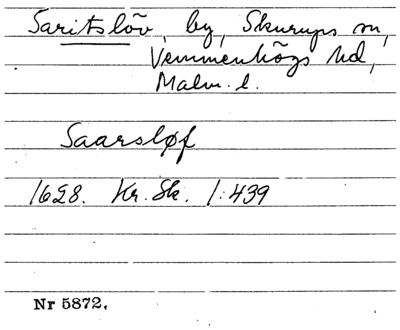 Saritslöv, by, Skurups sn,
Vemmenhögs hd,
Malm. l.
Saarsløf
1628. Kr. Sk. 1:439
Nr 5872.